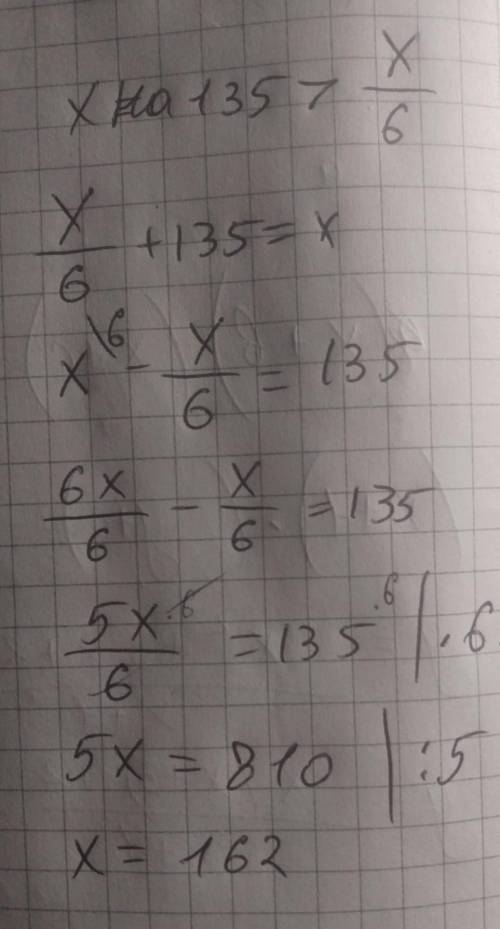 x на 135 > x/6
x/6 + 135 = x
x\6 - x/6 = 135
6x/6 - x/6 = 135
5x·6/6 = 135·6 | ·6
5x = 810 | :5
x = 162